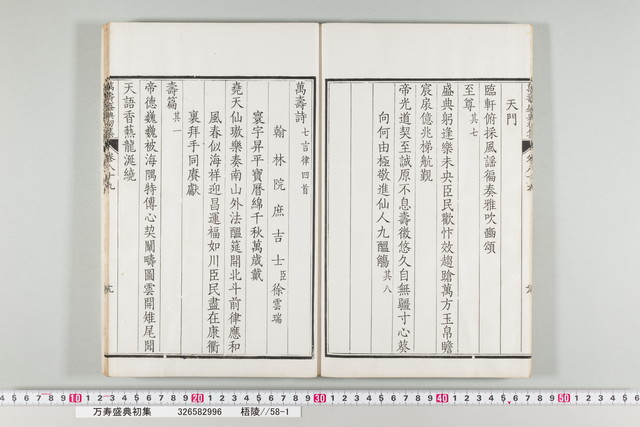 天門
臨軒俯採風謡徧奏雅吹豳頌
至尊其七
盛典躬逢樂未央臣民歡忭效趨蹌萬方玉帛瞻
宸扆億兆梯航覲
帝光道契至誠原不息壽徵悠久自無疆寸心葵
向何由極敬進仙人九醖觴其八
萬壽詩七言律四首
翰林院庶吉士臣徐雲瑞
寰宇昇平寶曆綿千秋萬歲戴
堯天仙璈樂奏南山外法醖筵開北斗前律應和
風春似海祥迎昌運福如川臣民盡在康衢
裏拜手同賡獻
壽篇其一
帝德巍巍被海隅特傳心契闡疇圖雲開雉尾聞
天語香爇龍涎繞
10 20 30 40 50
万寿盛典初集 326582996 梧陵//58-1